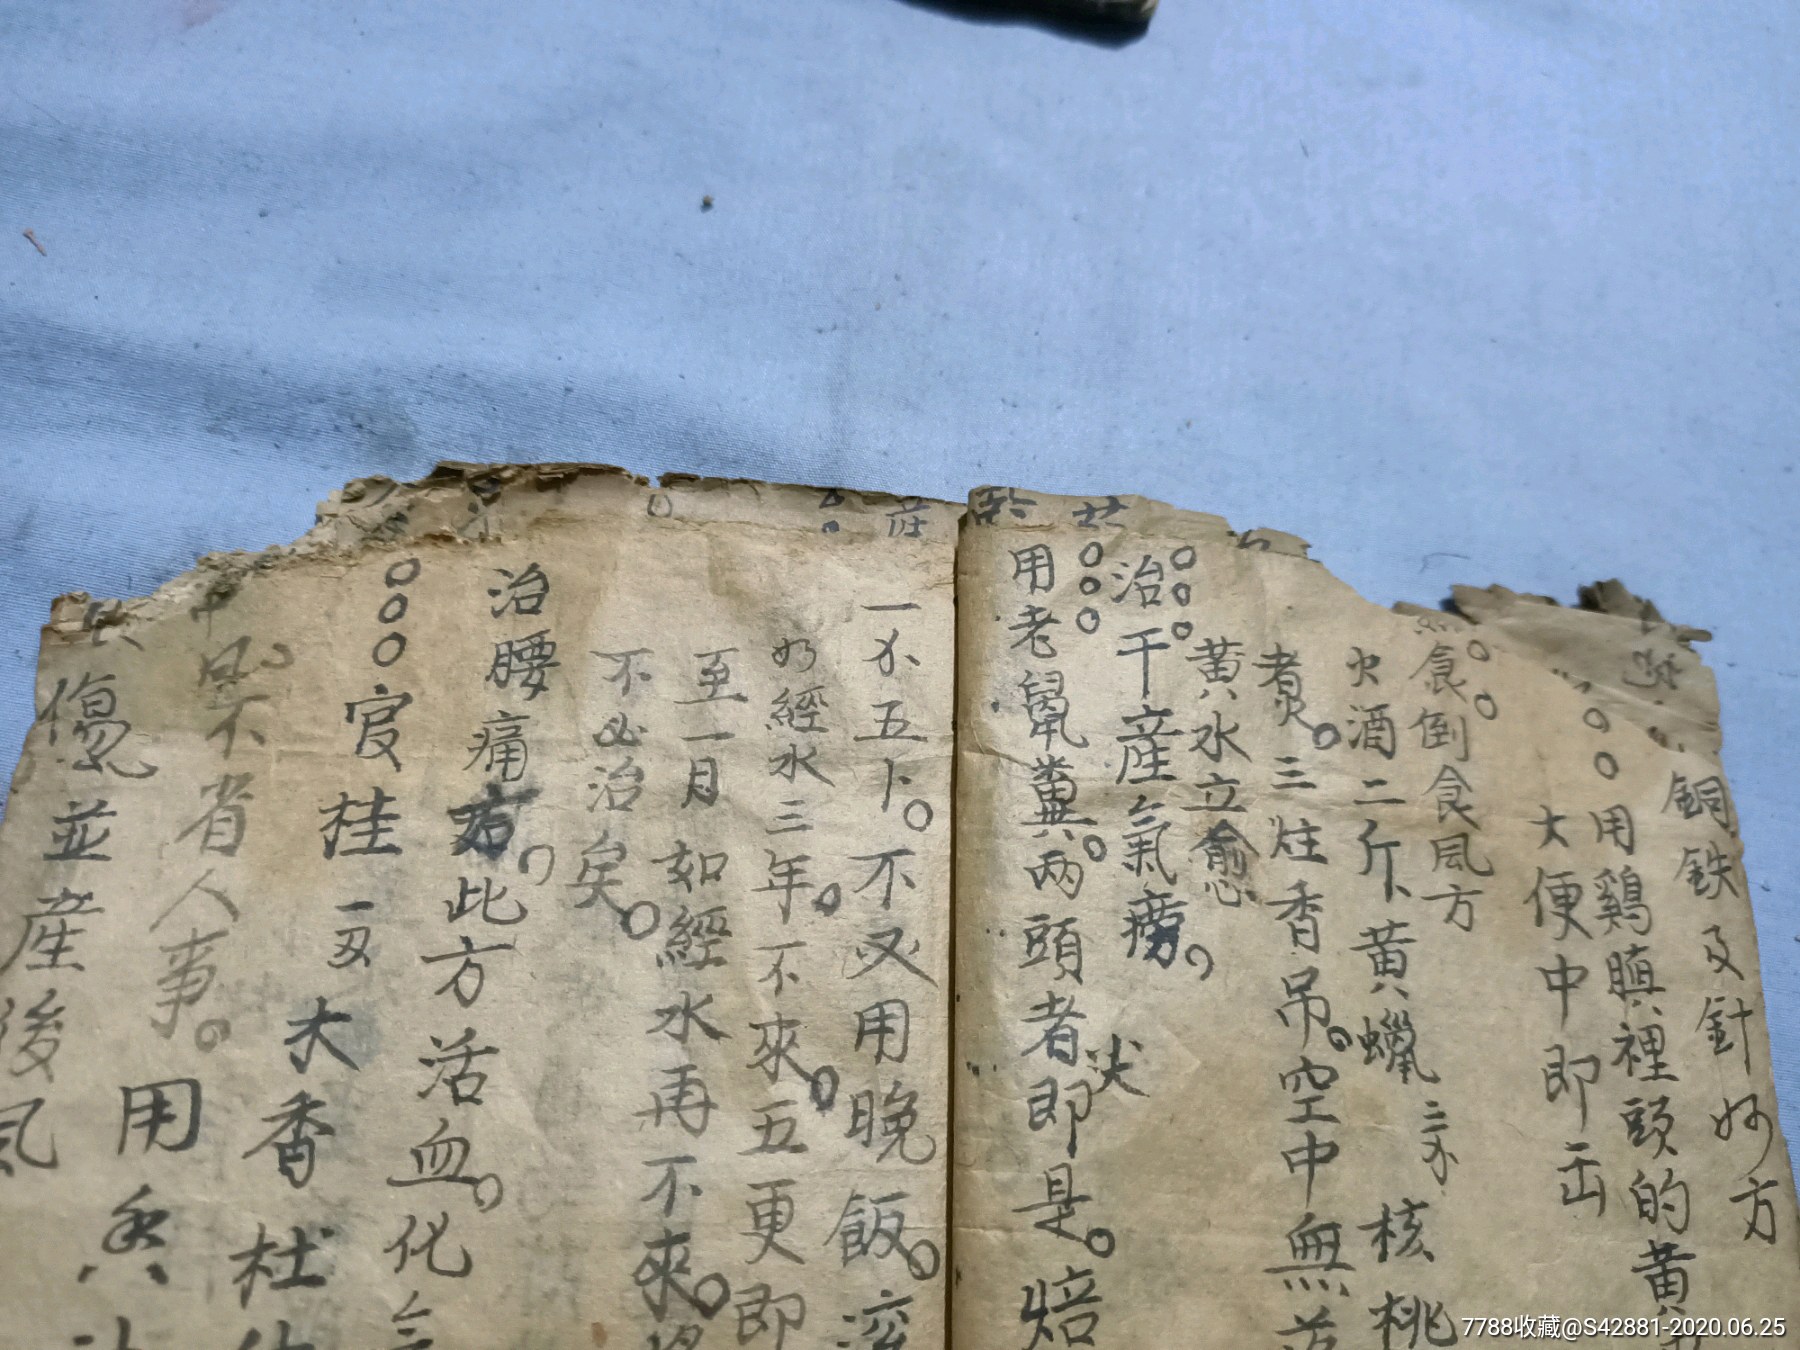 銅鉄及針妙方
用鷄䐜裡頭的黄
大便中即出
食倒食風方
火酒二斤黄蠟二
核桃
煮。三炷香吊。空中無
黄水立愈
治干産氣癆。
用老鼠糞。兩頭者即是。焙
尖
産
五卜。不必用晚飯。滚
経水三年。不來。五更即
至一月如經水再不來。
不必治矣。
治腰痛方。此方活血。化
官桂
木香杜
中風不省人事。用
傷並産後風
7788收藏@S42881-2020.06.25